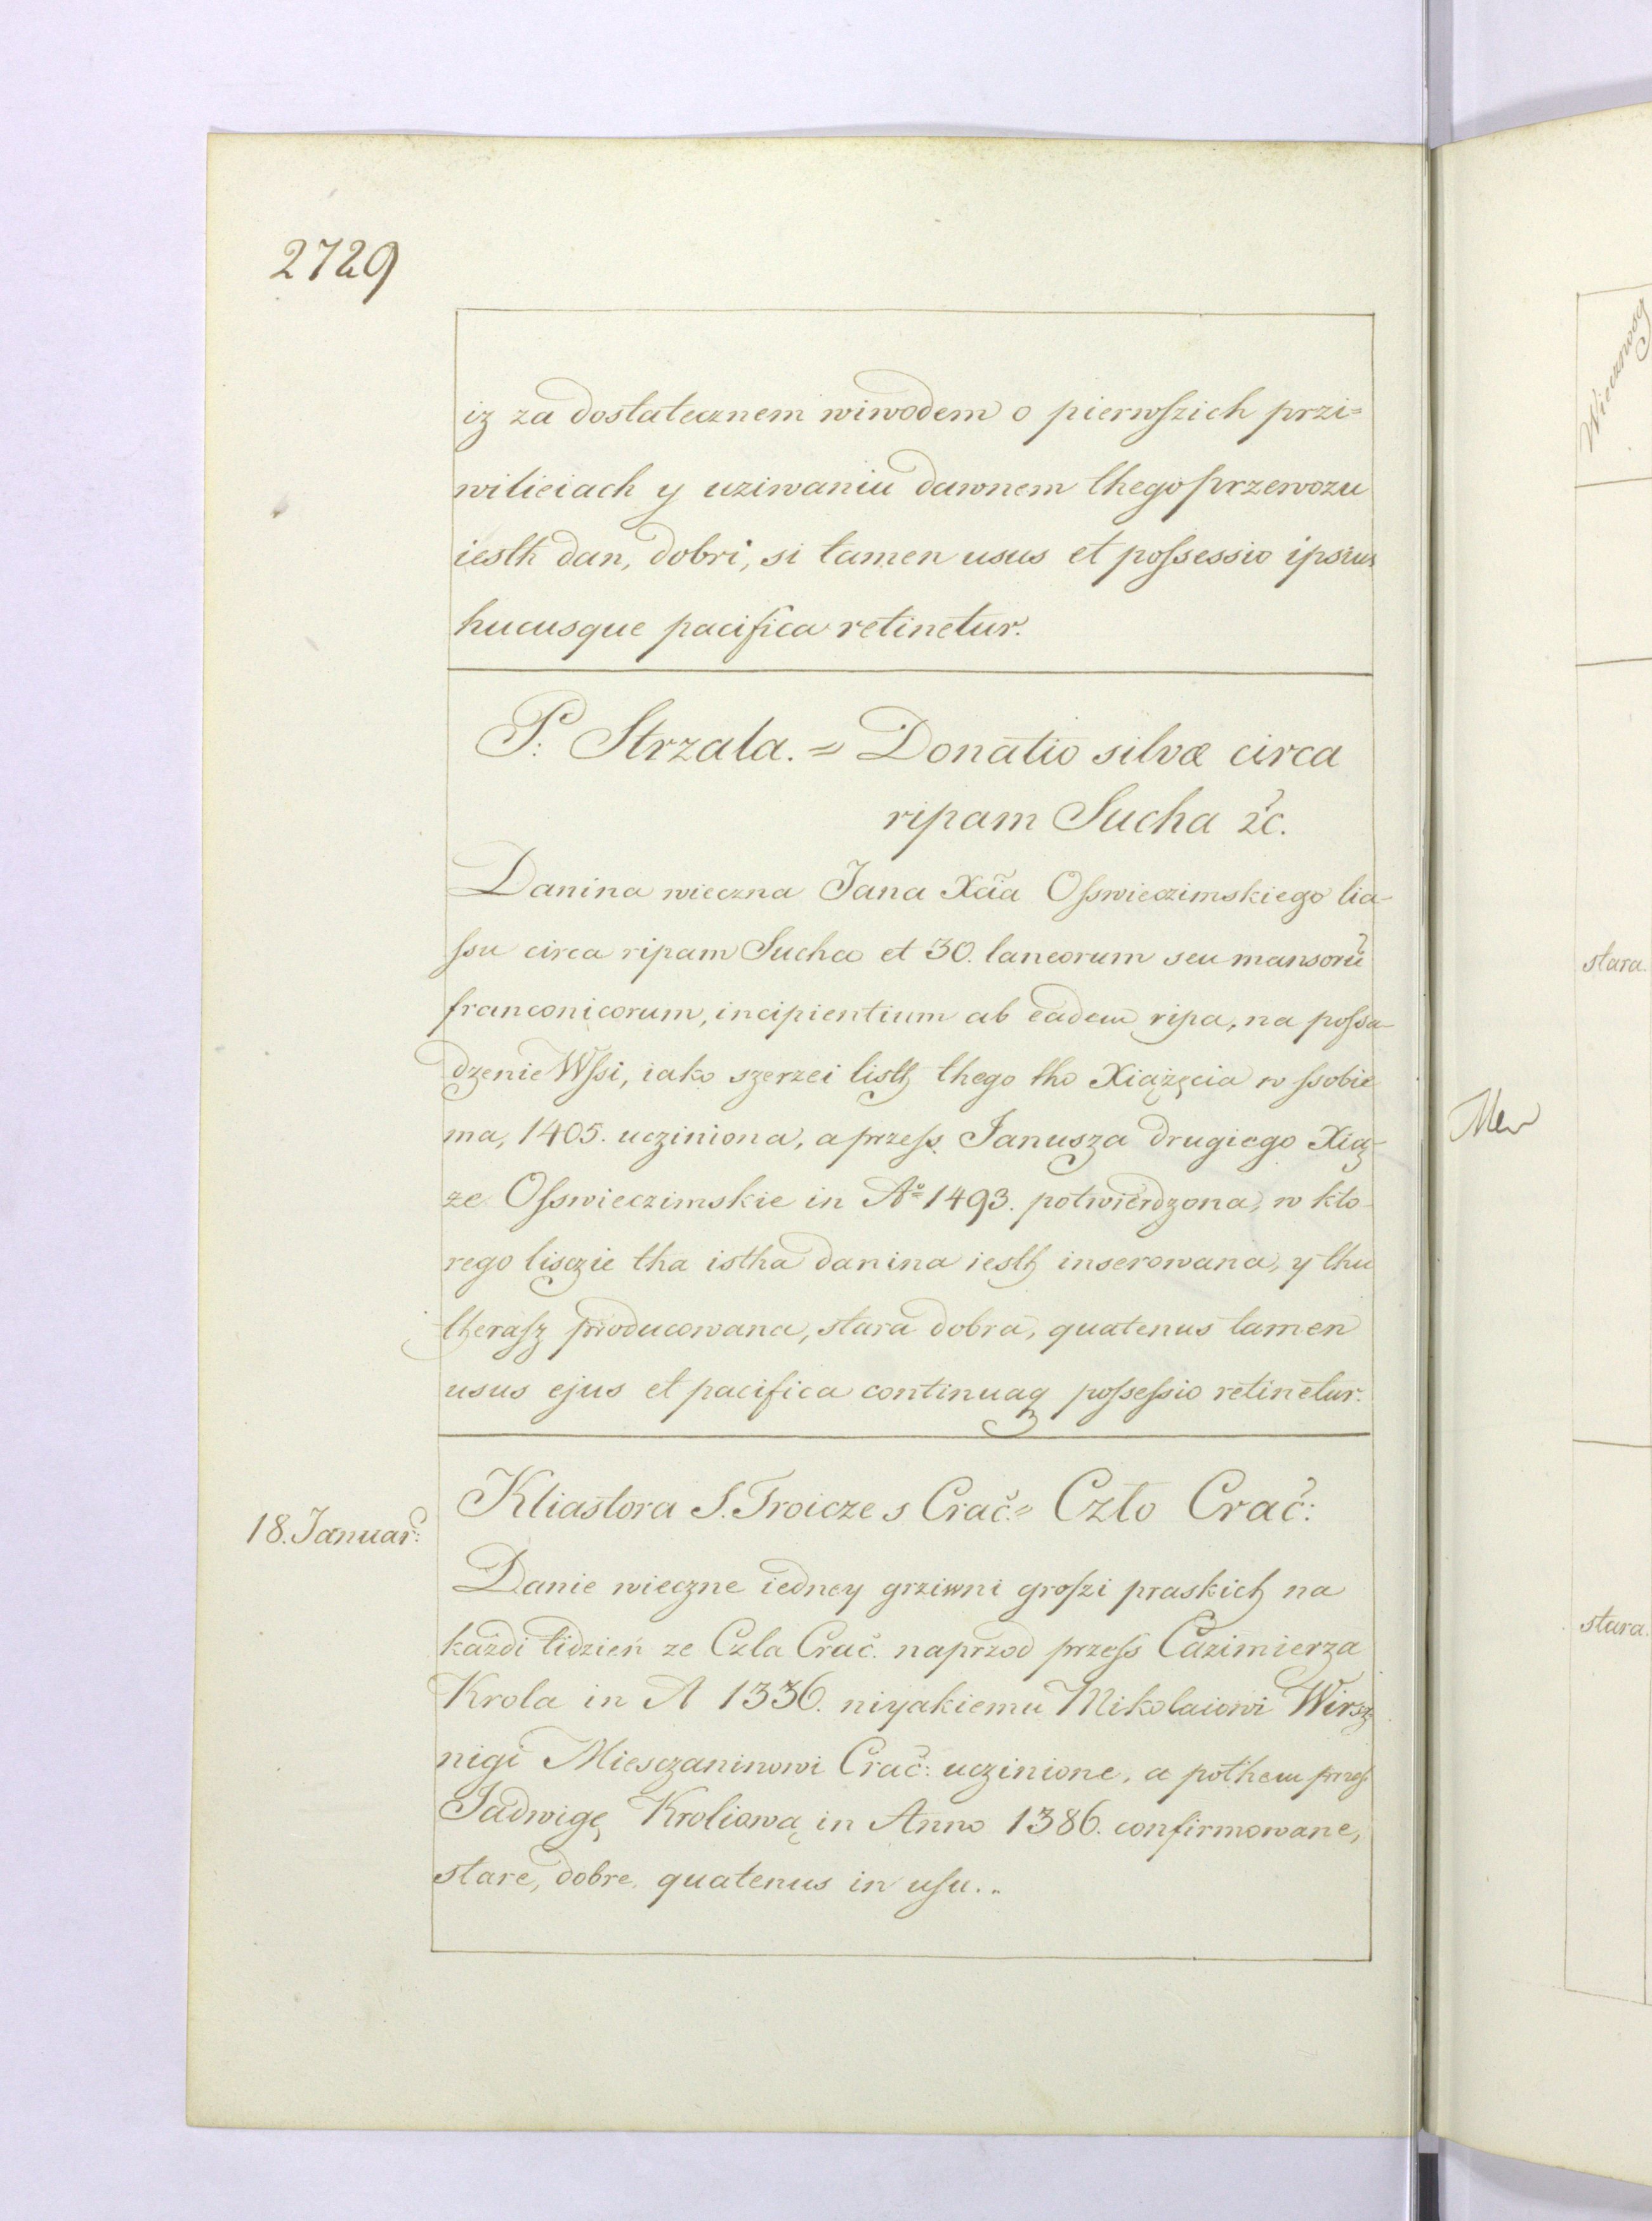 2729
iz za dostatecznem wiwodem o pierwſzich przi=
wilieiach y uziwaniu dawnem thego przewozu
iesth dan, dobri, si tamen usus et poſsessio ipsius
hucusque pacifica retinetur.
P: Strzala. = Donatio silvæ circa
ripam Sucha &c.
Danina wieczna Jana Xcia Oſswieczimskiego lia-
ſsu circa ripam Sucha et 30. laneorum seu mansorū
franconicorum, incipientium ab eadem ripa, na poſsa-
dzenie Wſsi, iako szerzei listh thego tho Xiążęcia w ſsobie
ma, 1405. ucziniona, a przeſs Janusza drugiego Xią-
ze Oſswieczimskie in A° 1493. potwierdzona, w kto-
rego lisczie tha istha danina iesth inserowana, y thu
theraſz producowana, stara dobra, quatenus tamen
usus ejus et pacifica continuaq poſseſsio retinetur.
18. Januar:
Kliastora S. Troicze s Crac. = Czło Crac:
Danie wieczne iedney grziwni groſzi praskich na
każdi tidzień ze Czla Crac. naprzod przeſs Cazimierza
Krola in A 1336. niyakiemu Mikolaiowi Wirsz
nigi Miesczaninowi Crac: uczinione, a pothem przeſs
Jadwigę Kroliową in Anno 1386. confirmowane,
stare, dobre, quatenus in uſu..
stara.
stara.